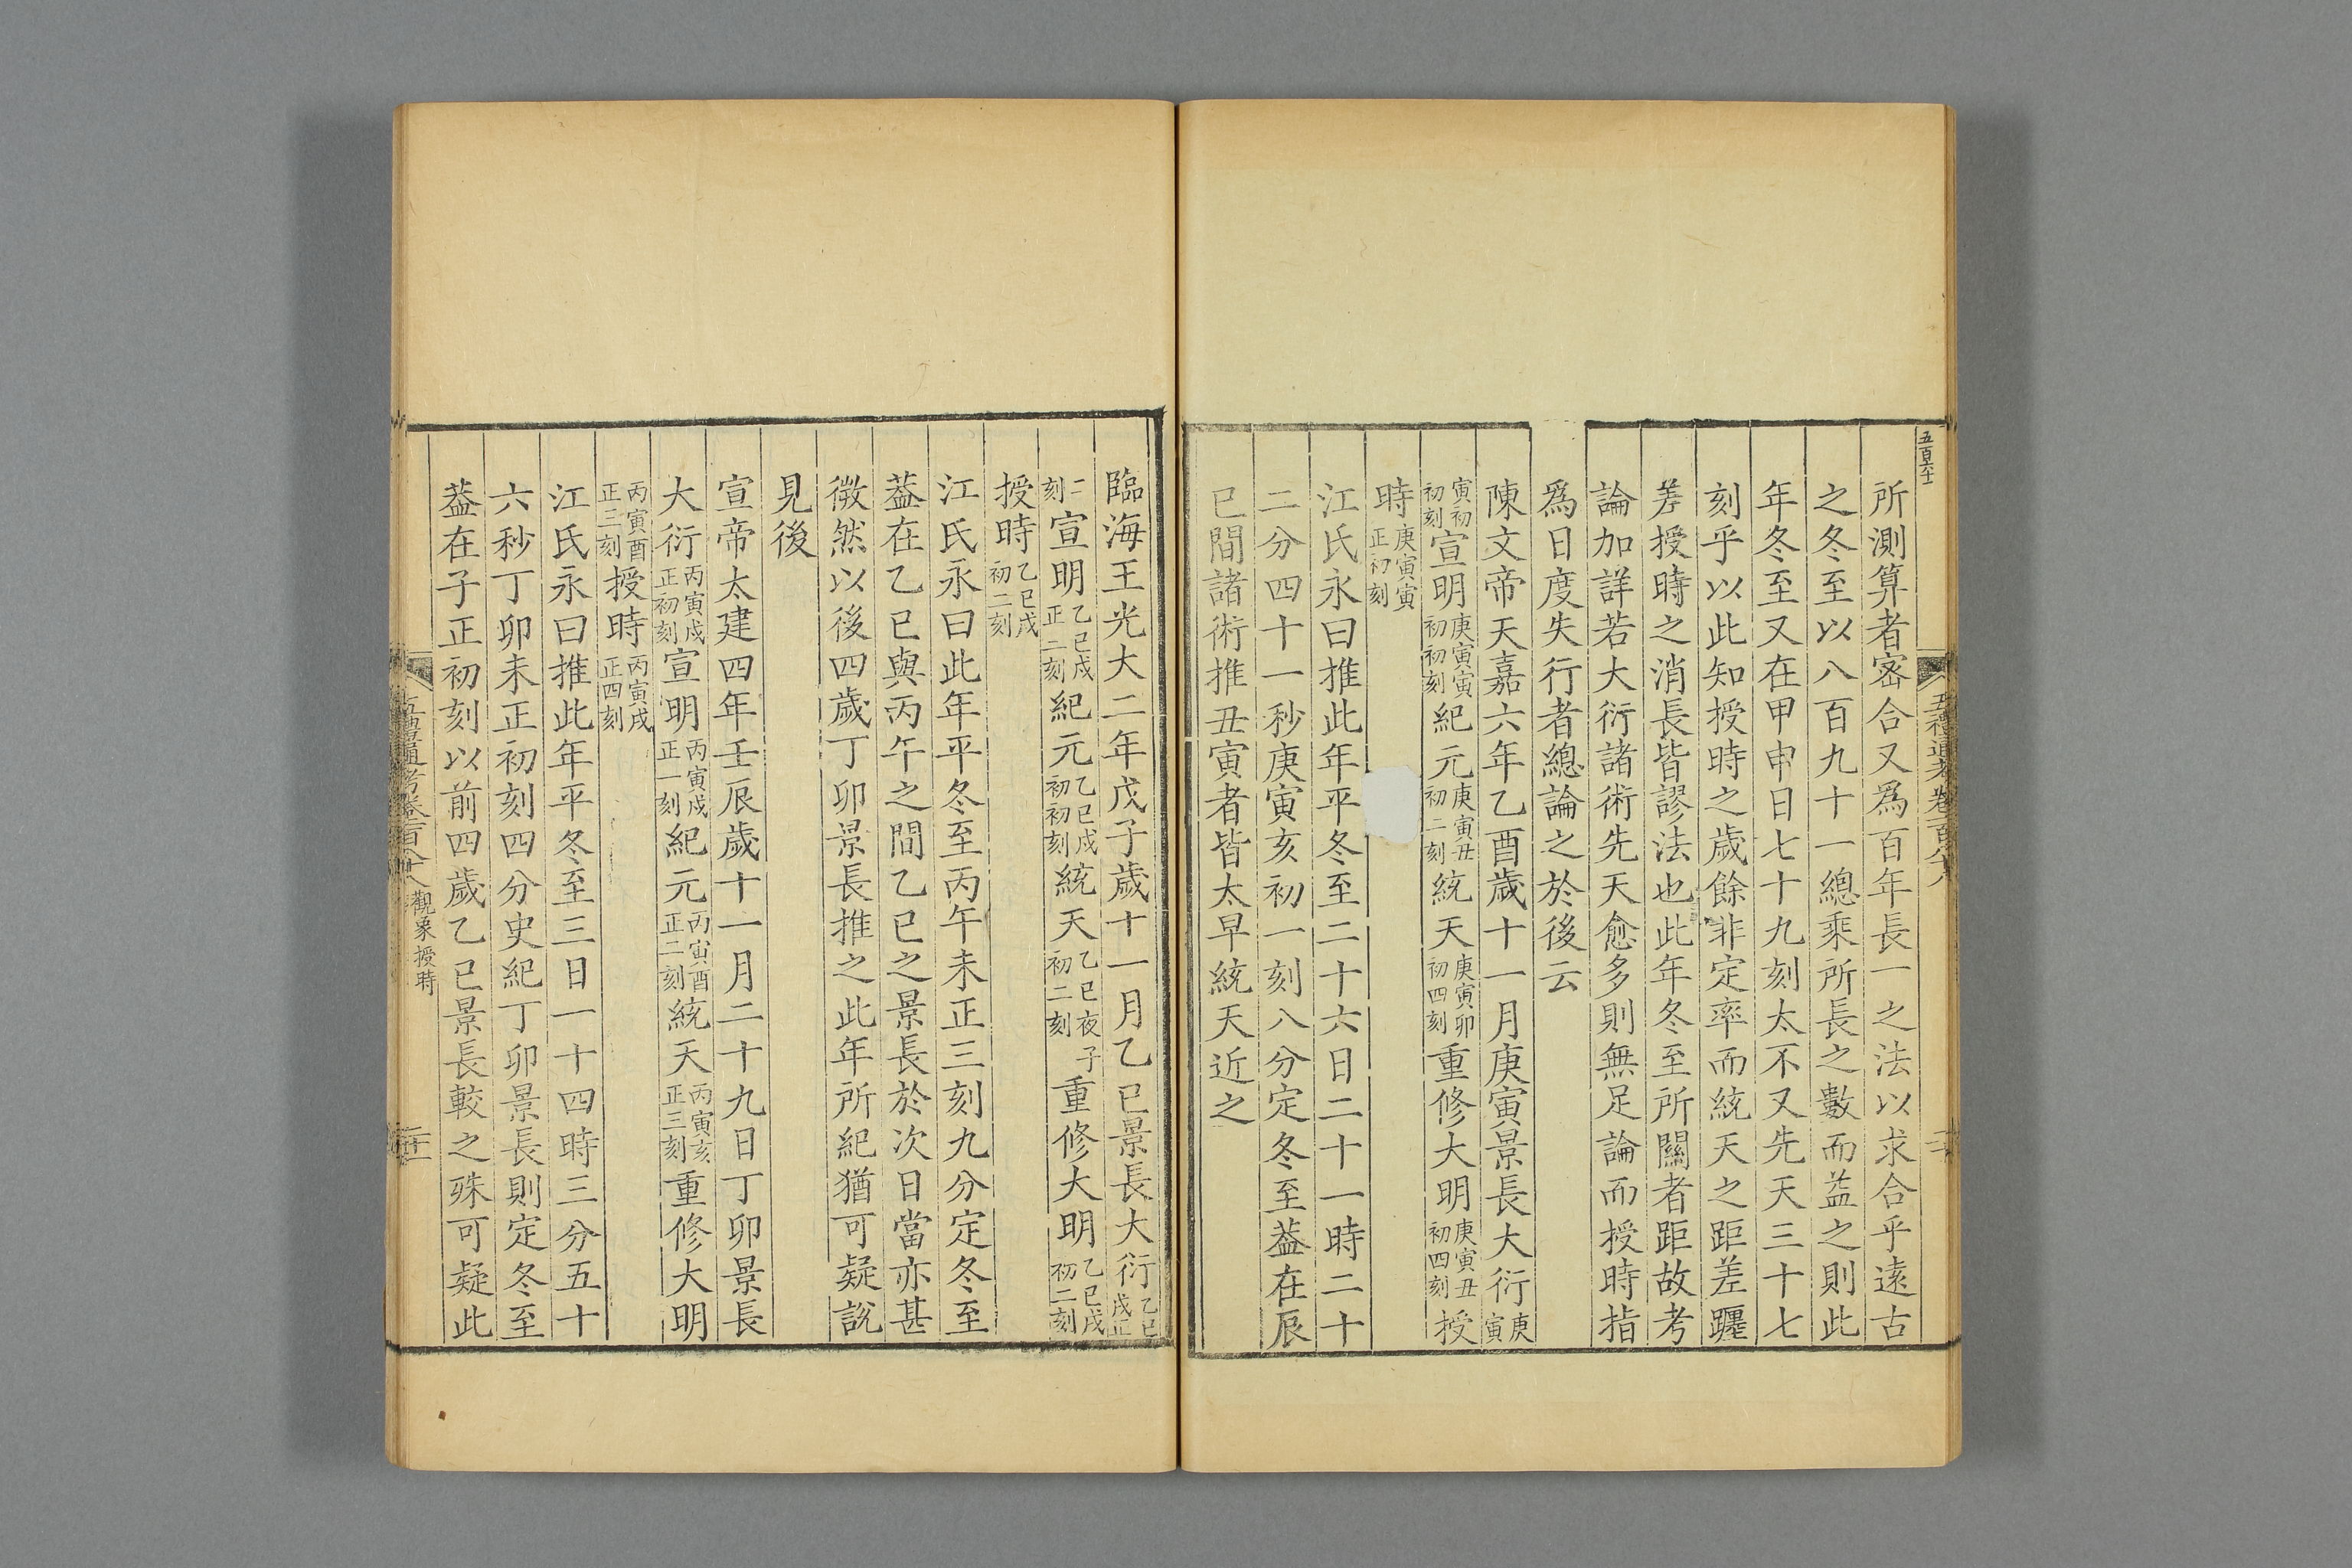 五百六十
五禮通考卷一百八十八
所測算者宻合又爲百年長一之法以求合乎遠古
之冬至以八百九十一總乘所長之數而益之則此
年冬至又在甲申日七十九刻太不又先天三十七
刻乎以此知授時之歲餘非定率而統天之距差躔
差授時之消長皆謬法也此年冬至所關者距故考
論加詳若大衍諸術先天愈多則無足論而授時指
爲日度失行者總論之於後云
陳文帝天嘉六年乙酉歲十一月庚寅景長大衍庚寅
寅初初刻宣明庚寅寅初初刻紀元庚寅丑初二刻統天庚寅卯初四刻重修大明庚寅丑初四刻授
時庚寅寅正初刻
江氏永曰推此年平冬至二十六日二十一時二十
二分四十一秒庚寅亥初一刻八分定冬至葢在辰
巳間諸術推丑寅者皆太早統天近之
臨海王光大二年戊子歲十一月乙巳景長大衍乙巳戌正
二刻宣明乙巳戌正二刻紀元乙巳戌初初刻統天乙巳夜子初二刻重修大明乙巳戌初二刻
授時乙巳戌初二刻
江氏永曰此年平冬至丙午未正三刻九分定冬至
葢在乙巳與丙午之間乙巳之景長於次日當亦甚
微然以後四歲丁卯景長推之此年所紀猶可疑說
見後
宣帝太建四年壬辰歲十一月二十九日丁卯景長
大衍丙寅戌正初刻宣明丙寅戌正一刻紀元丙寅酉正二刻統天丙寅亥正三刻重修大明
丙寅酉正三刻授時丙寅戌正四刻
江氏永曰推此年平冬至三日一十四時三分五十
六秒丁卯未正初刻四分史紀丁卯景長則定冬至
葢在子正初刻以前四歲乙巳景長較之殊可疑此
五禮通考卷一百八十八 觀象授時